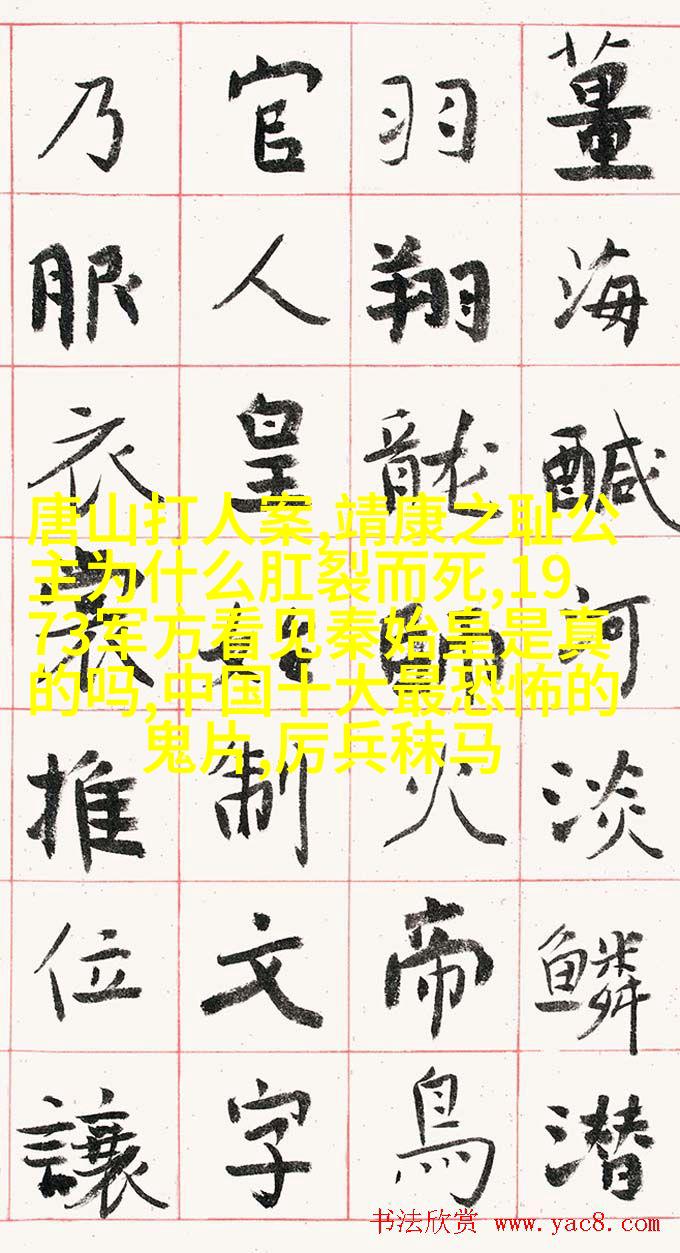 薑海醎河淡鱗潛
羽翔龍師火帝鳥
官人皇始制文字
乃服衣裳推位讓
唐山打人案,靖康之耻公
主为什么肛裂而死,19
73军方看见秦始皇是真
的吗,中国十大最恐怖的
鬼片,厉兵秣马
书法欣赏 www.yac8.com